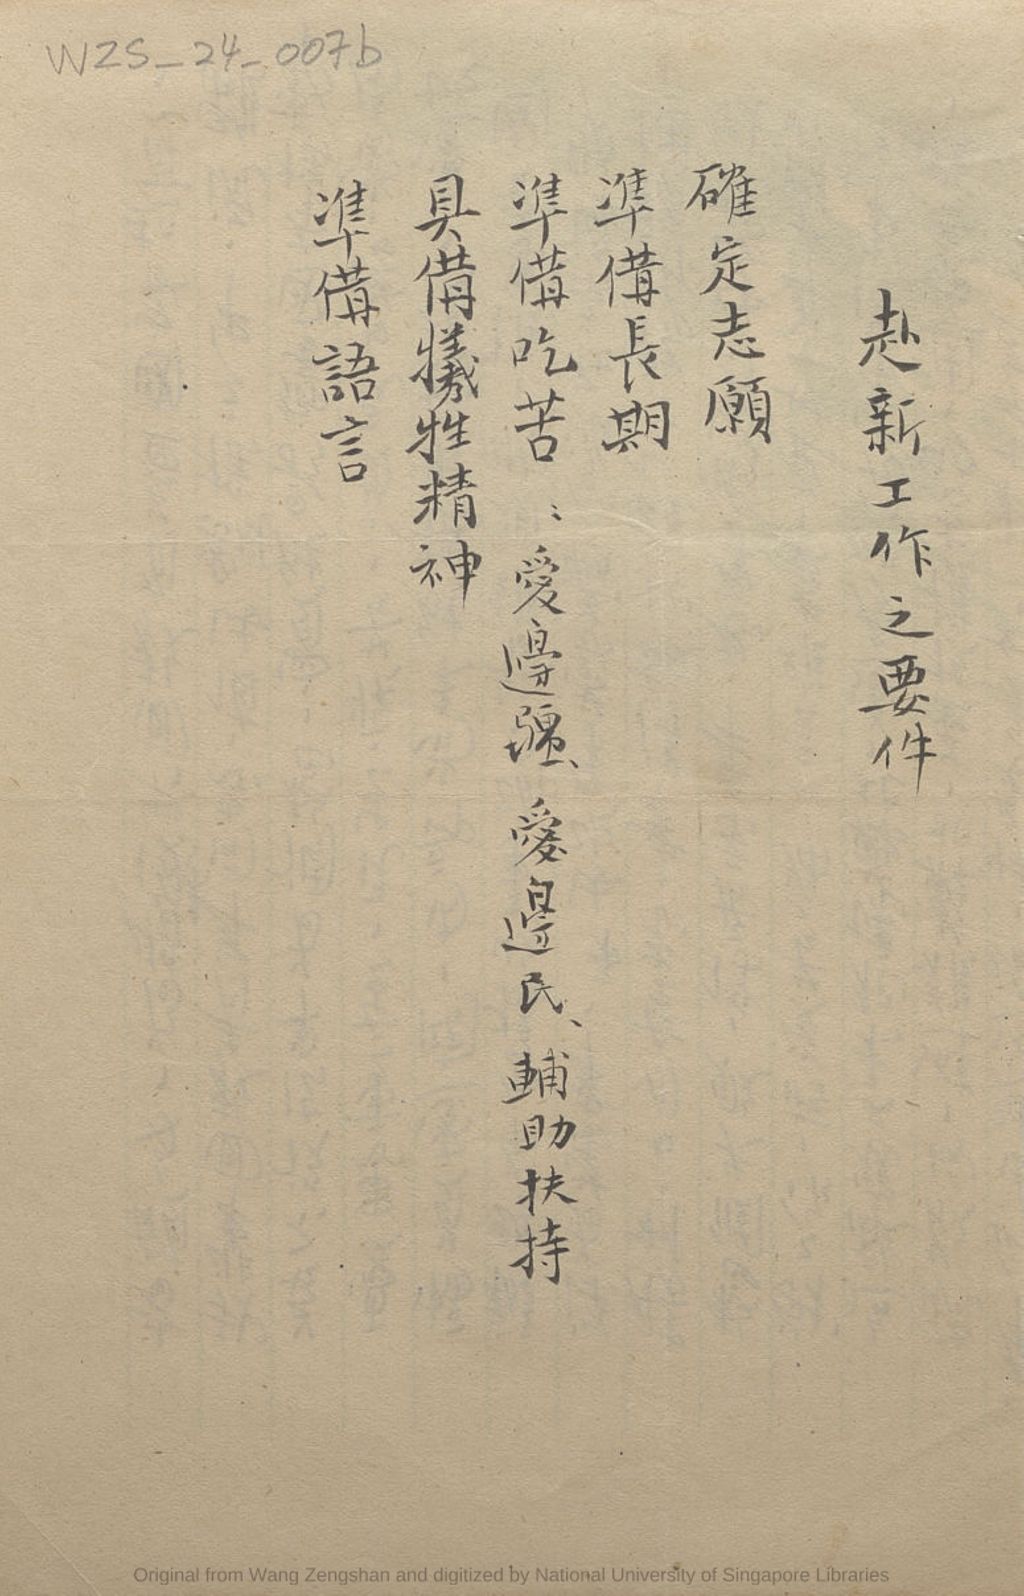 WZS_24_007b
赴新工作之要件
確定志願
準備長期
準備吃苦：愛邊疆、愛邊民、輔助扶持
具備犧牲精神
準備語言
Original from Wang Zengshan and digitized by National University of Singapore Libraries